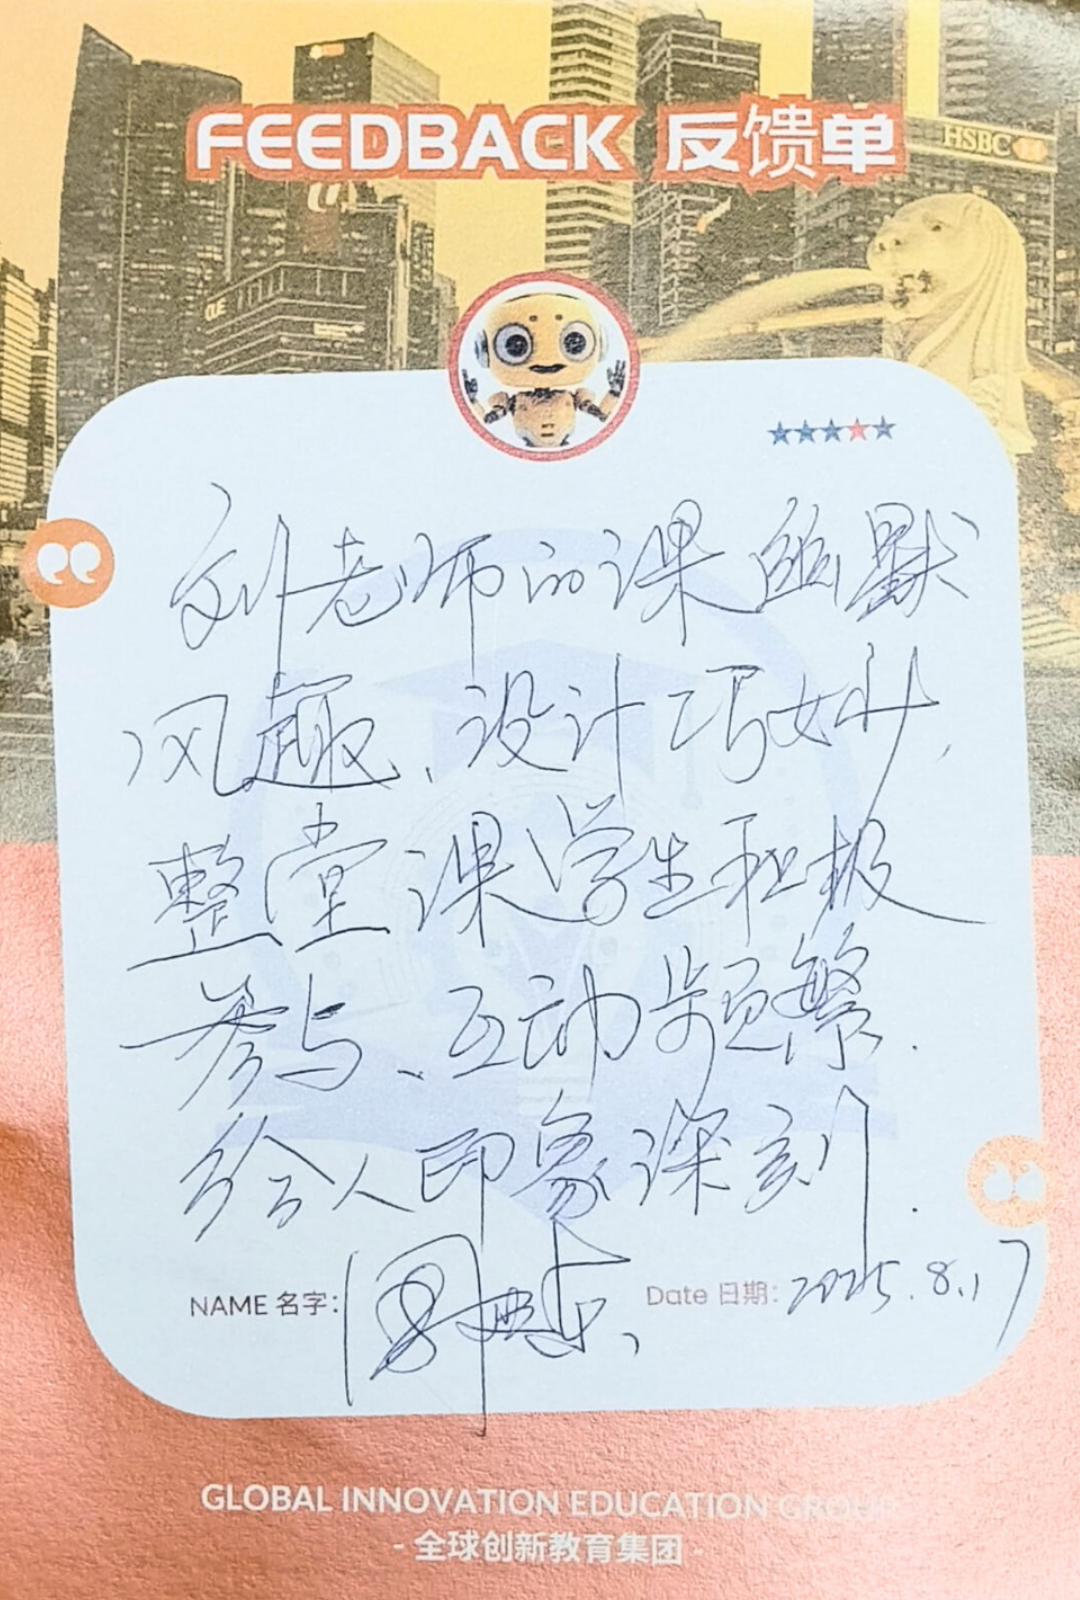 FEEDBACK 反馈单
HSBC
CUE
刘老师的课幽默
风趣、设计巧妙，
整堂课学生积极
参与、互动频繁.
给人印象深刻.
NAME 名字：
Date 日期：2025.8.17
GLOBAL INNOVATION EDUCATION GROUP
- 全球创新教育集团 -